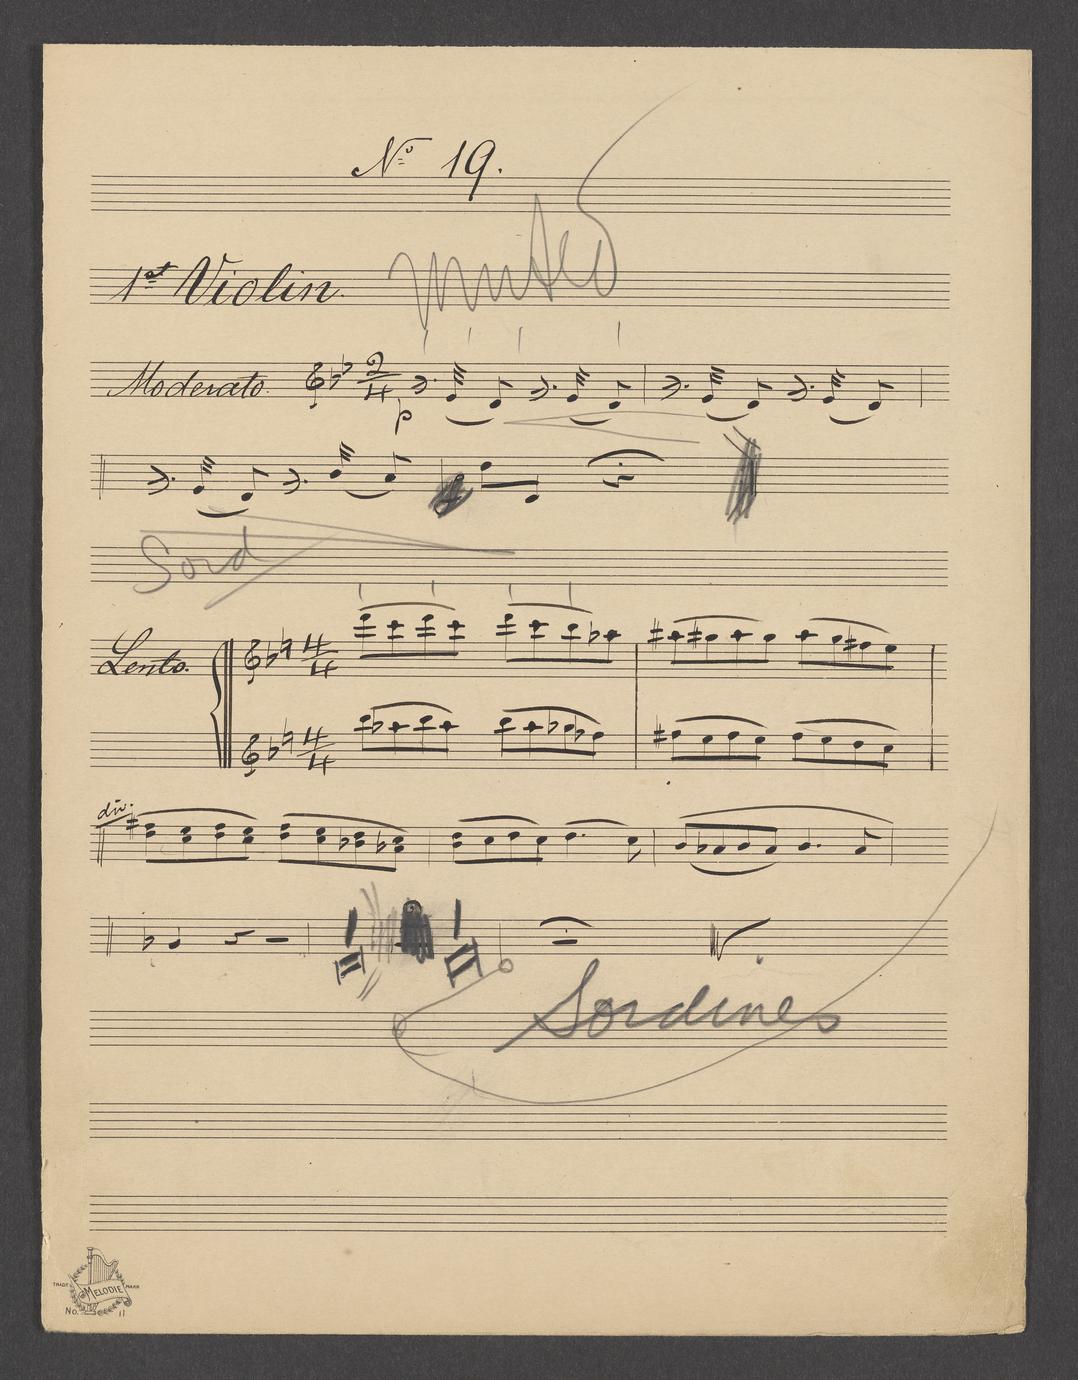 No 19.
1st Violin. Mutes
Moderato. 2/4
p
Sord
Lento. 4/4
4/4
div.
Sordines
TRADE MELODIE MARK
No. 11